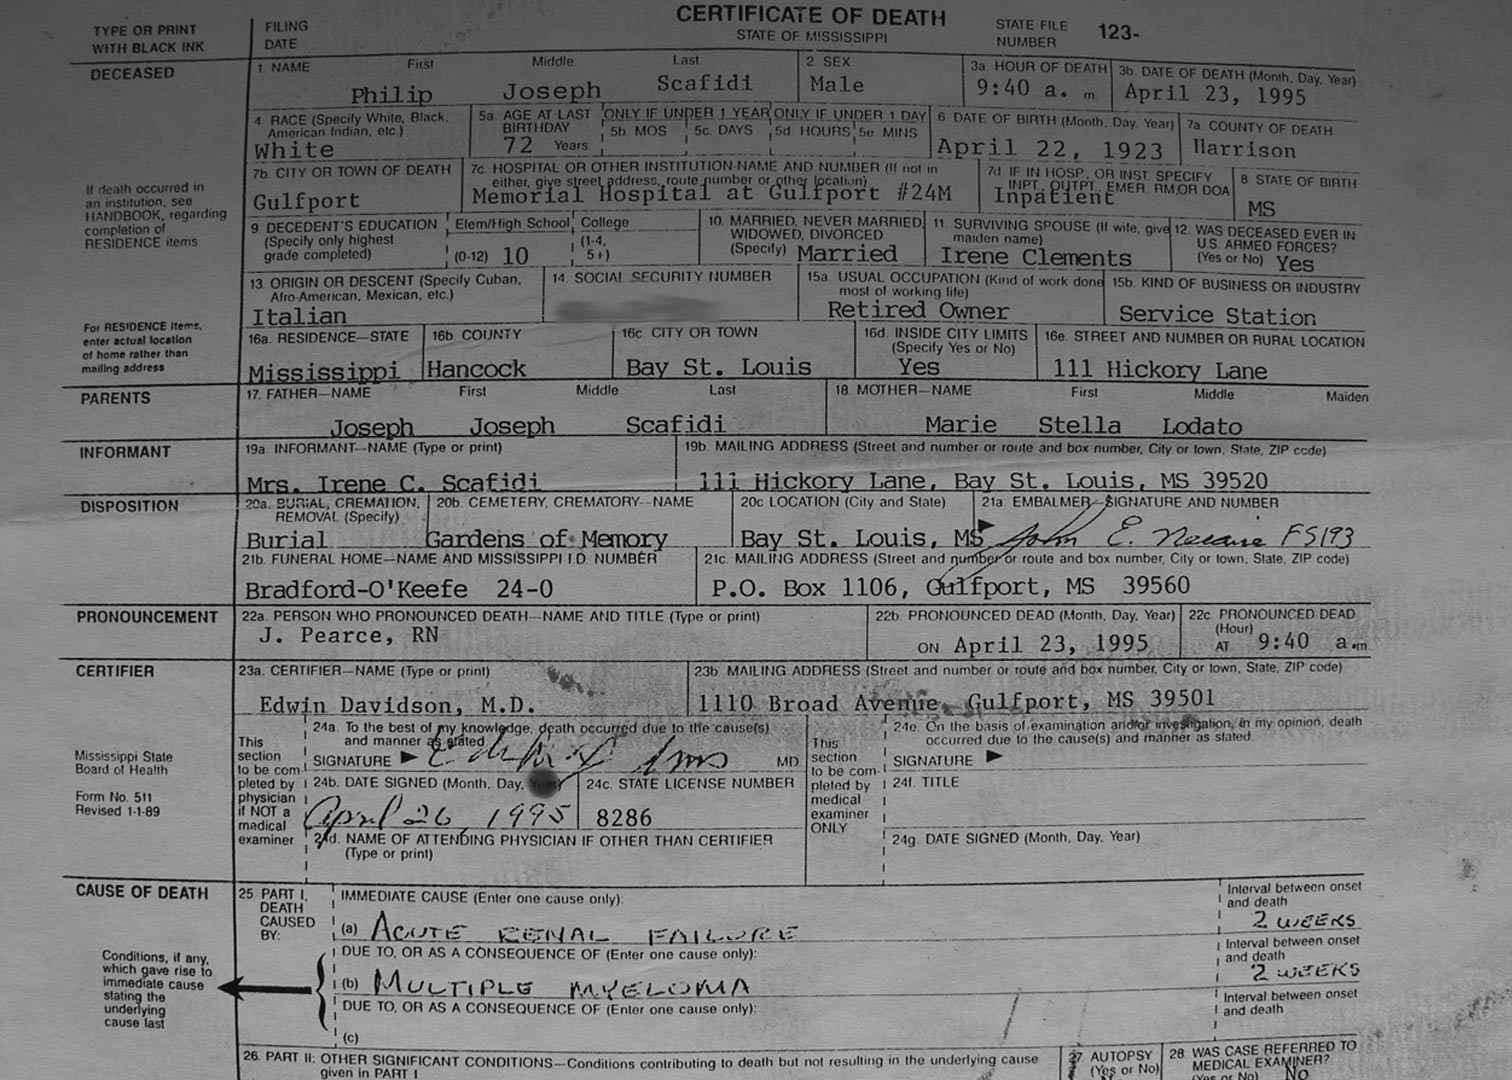 CERTIFICATE OF DEATH
STATE OF MISSISSIPPI
TYPE OR PRINT WITH BLACK INK
FILING DATE
STATE FILE NUMBER 123-
DECEASED
1. NAME First Middle Last
Philip Joseph Scafidi
2. SEX
Male
3a. HOUR OF DEATH
9:40 a. m.
3b. DATE OF DEATH (Month, Day, Year)
April 23, 1995
4. RACE (Specify White, Black, American Indian, etc.)
White
5a. AGE AT LAST BIRTHDAY
72 Years
ONLY IF UNDER 1 YEAR
5b. MOS 5c. DAYS
ONLY IF UNDER 1 DAY
5d. HOURS 5e MINS
6 DATE OF BIRTH (Month, Day, Year)
April 22, 1923
7a. COUNTY OF DEATH
Harrison
If death occurred in an institution, see HANDBOOK, regarding completion of RESIDENCE items
7b. CITY OR TOWN OF DEATH
Gulfport
7c. HOSPITAL OR OTHER INSTITUTION-NAME AND NUMBER (If not in either, give street address, route number or other location)
Memorial Hospital at Gulfport #24M
7d IF IN HOSP., OR INST. SPECIFY INPT., OUTPT., EMER. RM, OR DOA
Inpatient
8 STATE OF BIRTH
MS
9. DECEDENT'S EDUCATION (Specify only highest grade completed)
Elem/High School (0-12) 10
College (1-4, 5+)
10. MARRIED, NEVER MARRIED, WIDOWED, DIVORCED (Specify) Married
11. SURVIVING SPOUSE (If wife, give maiden name)
Irene Clements
12. WAS DECEASED EVER IN U.S. ARMED FORCES? (Yes or No) Yes
13. ORIGIN OR DESCENT (Specify Cuban, Afro-American, Mexican, etc.)
Italian
14. SOCIAL SECURITY NUMBER
15a. USUAL OCCUPATION (Kind of work done most of working life)
Retired Owner
15b. KIND OF BUSINESS OR INDUSTRY
Service Station
For RESIDENCE items, enter actual location of home rather than mailing address
16a. RESIDENCE—STATE
Mississippi
16b. COUNTY
Hancock
16c. CITY OR TOWN
Bay St. Louis
16d. INSIDE CITY LIMITS (Specify Yes or No)
Yes
16e. STREET AND NUMBER OR RURAL LOCATION
111 Hickory Lane
PARENTS
17. FATHER—NAME First Middle Last
Joseph Joseph Scafidi
18. MOTHER—NAME First Middle Maiden
Marie Stella Lodato
INFORMANT
19a. INFORMANT—NAME (Type or print)
Mrs. Irene C. Scafidi
19b. MAILING ADDRESS (Street and number or route and box number, City or town, State, ZIP code)
111 Hickory Lane, Bay St. Louis, MS 39520
DISPOSITION
20a. BURIAL, CREMATION, REMOVAL (Specify)
Burial
20b. CEMETERY, CREMATORY—NAME
Gardens of Memory
20c LOCATION (City and State)
Bay St. Louis, MS
21a. EMBALMER—SIGNATURE AND NUMBER
John E. Necaise FS193
21b. FUNERAL HOME—NAME AND MISSISSIPPI I.D. NUMBER
Bradford-O'Keefe 24-0
21c. MAILING ADDRESS (Street and number or route and box number, City or town, State, ZIP code)
P.O. Box 1106, Gulfport, MS 39560
PRONOUNCEMENT
22a. PERSON WHO PRONOUNCED DEATH—NAME AND TITLE (Type or print)
J. Pearce, RN
22b. PRONOUNCED DEAD (Month, Day, Year)
ON April 23, 1995
22c. PRONOUNCED DEAD (Hour)
AT 9:40 a.m
CERTIFIER
23a. CERTIFIER—NAME (Type or print)
Edwin Davidson, M.D.
23b. MAILING ADDRESS (Street and number or route and box number, City or town, State, ZIP code)
1110 Broad Avenue, Gulfport, MS 39501
Mississippi State Board of Health
Form No. 511
Revised 1-1-89
This section to be completed by physician if NOT a medical examiner
24a. To the best of my knowledge, death occurred due to the cause(s) and manner as stated.
SIGNATURE MD
24b. DATE SIGNED (Month, Day, Year)
April 26, 1995
24c. STATE LICENSE NUMBER
8286
24d. NAME OF ATTENDING PHYSICIAN IF OTHER THAN CERTIFIER (Type or print)
This section to be completed by medical examiner ONLY
24e. On the basis of examination and/or investigation, in my opinion, death occurred due to the cause(s) and manner as stated.
SIGNATURE
24f. TITLE
24g. DATE SIGNED (Month, Day, Year)
CAUSE OF DEATH
25 PART I. DEATH CAUSED BY:
IMMEDIATE CAUSE (Enter one cause only):
(a) ACUTE RENAL FAILURE
Interval between onset and death
2 WEEKS
Conditions, if any, which gave rise to immediate cause stating the underlying cause last
DUE TO, OR AS A CONSEQUENCE OF (Enter one cause only):
(b) MULTIPLE MYELOMA
Interval between onset and death
2 WEEKS
DUE TO, OR AS A CONSEQUENCE OF (Enter one cause only):
(c)
Interval between onset and death
26. PART II: OTHER SIGNIFICANT CONDITIONS—Conditions contributing to death but not resulting in the underlying cause given in PART I
27. AUTOPSY (Yes or No)
28. WAS CASE REFERRED TO MEDICAL EXAMINER? (Yes or No) No